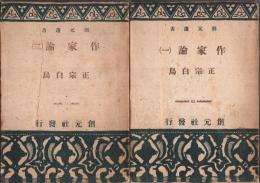 創元選書
作家論㈡
正宗白鳥
創元社發行
創元選書
作家論㈠
正宗白鳥
創元社發行